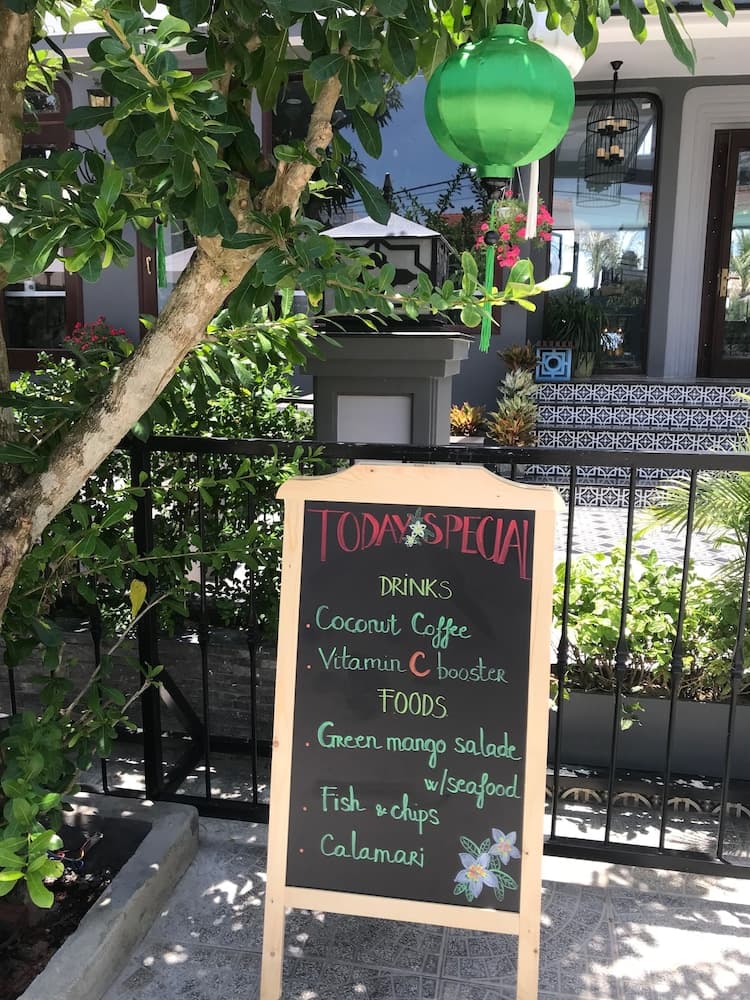 TODAY SPECIAL
DRINKS
. Coconut Coffee
. Vitamin C booster
FOODS
. Green mango salade
w/seafood
. Fish & chips
. Calamari